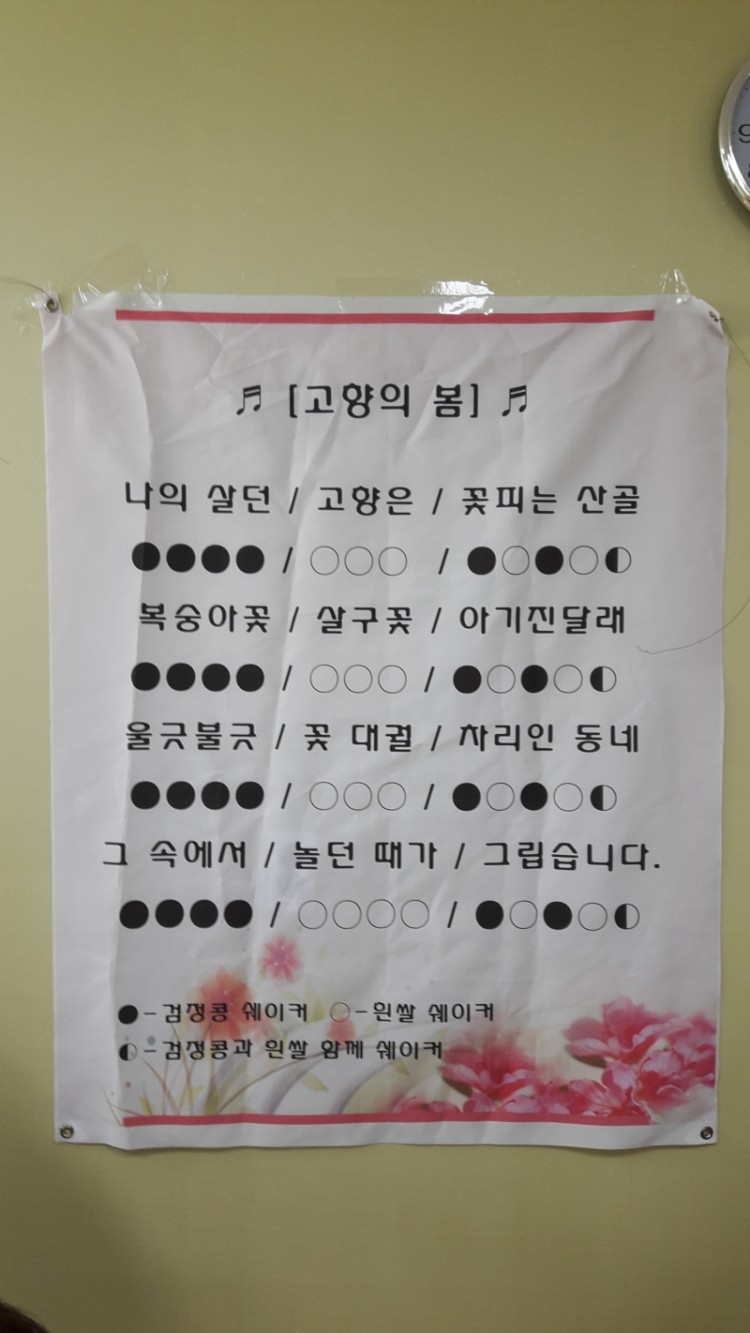 ♬ [고향의 봄] ♬
나의 살던 / 고향은 / 꽃피는 산골
●●●● / ○○○ / ●○●○◐
복숭아꽃 / 살구꽃 / 아기진달래
●●●● / ○○○ / ●○●○◐
울긋불긋 / 꽃 대궐 / 차리인 동네
●●●● / ○○○ / ●○●○◐
그 속에서 / 놀던 때가 / 그립습니다.
●●●● / ○○○○ / ●○●○◐
●-검정콩 쉐이커 ○-흰쌀 쉐이커
◐-검정콩과 흰쌀 함께 쉐이커
9